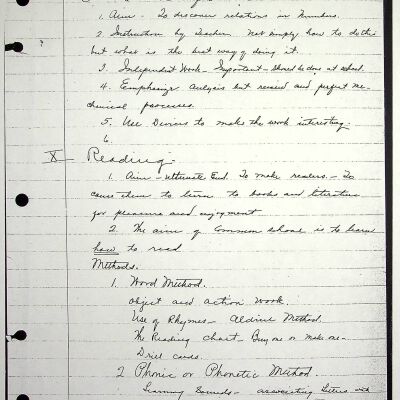 1. Aim - To discover relations in Numbers.
2. Instruction by teacher. Not simply how to do this
but what is the best way of doing it.
3. Independent Work - Important - Should be done at school.
4. Emphasize Analysis but reread and perfect me-
chanical processes.
5. Use Devices to make the work interesting.
6.
X Reading.
1. Aim - ultimate End. To make readers. - To
cause them to turn to books and literature
for pleasure and enjoyment
2. The aim of Common School is to learn
how to read
Methods.
1. Word Method.
Object and action work.
Use of Rhymes - Aldine Method.
The Reading chart - Buy one or make one -
Drill cards.
2 Phonic or Phonetic Method.
Learning Sounds - associating letters with